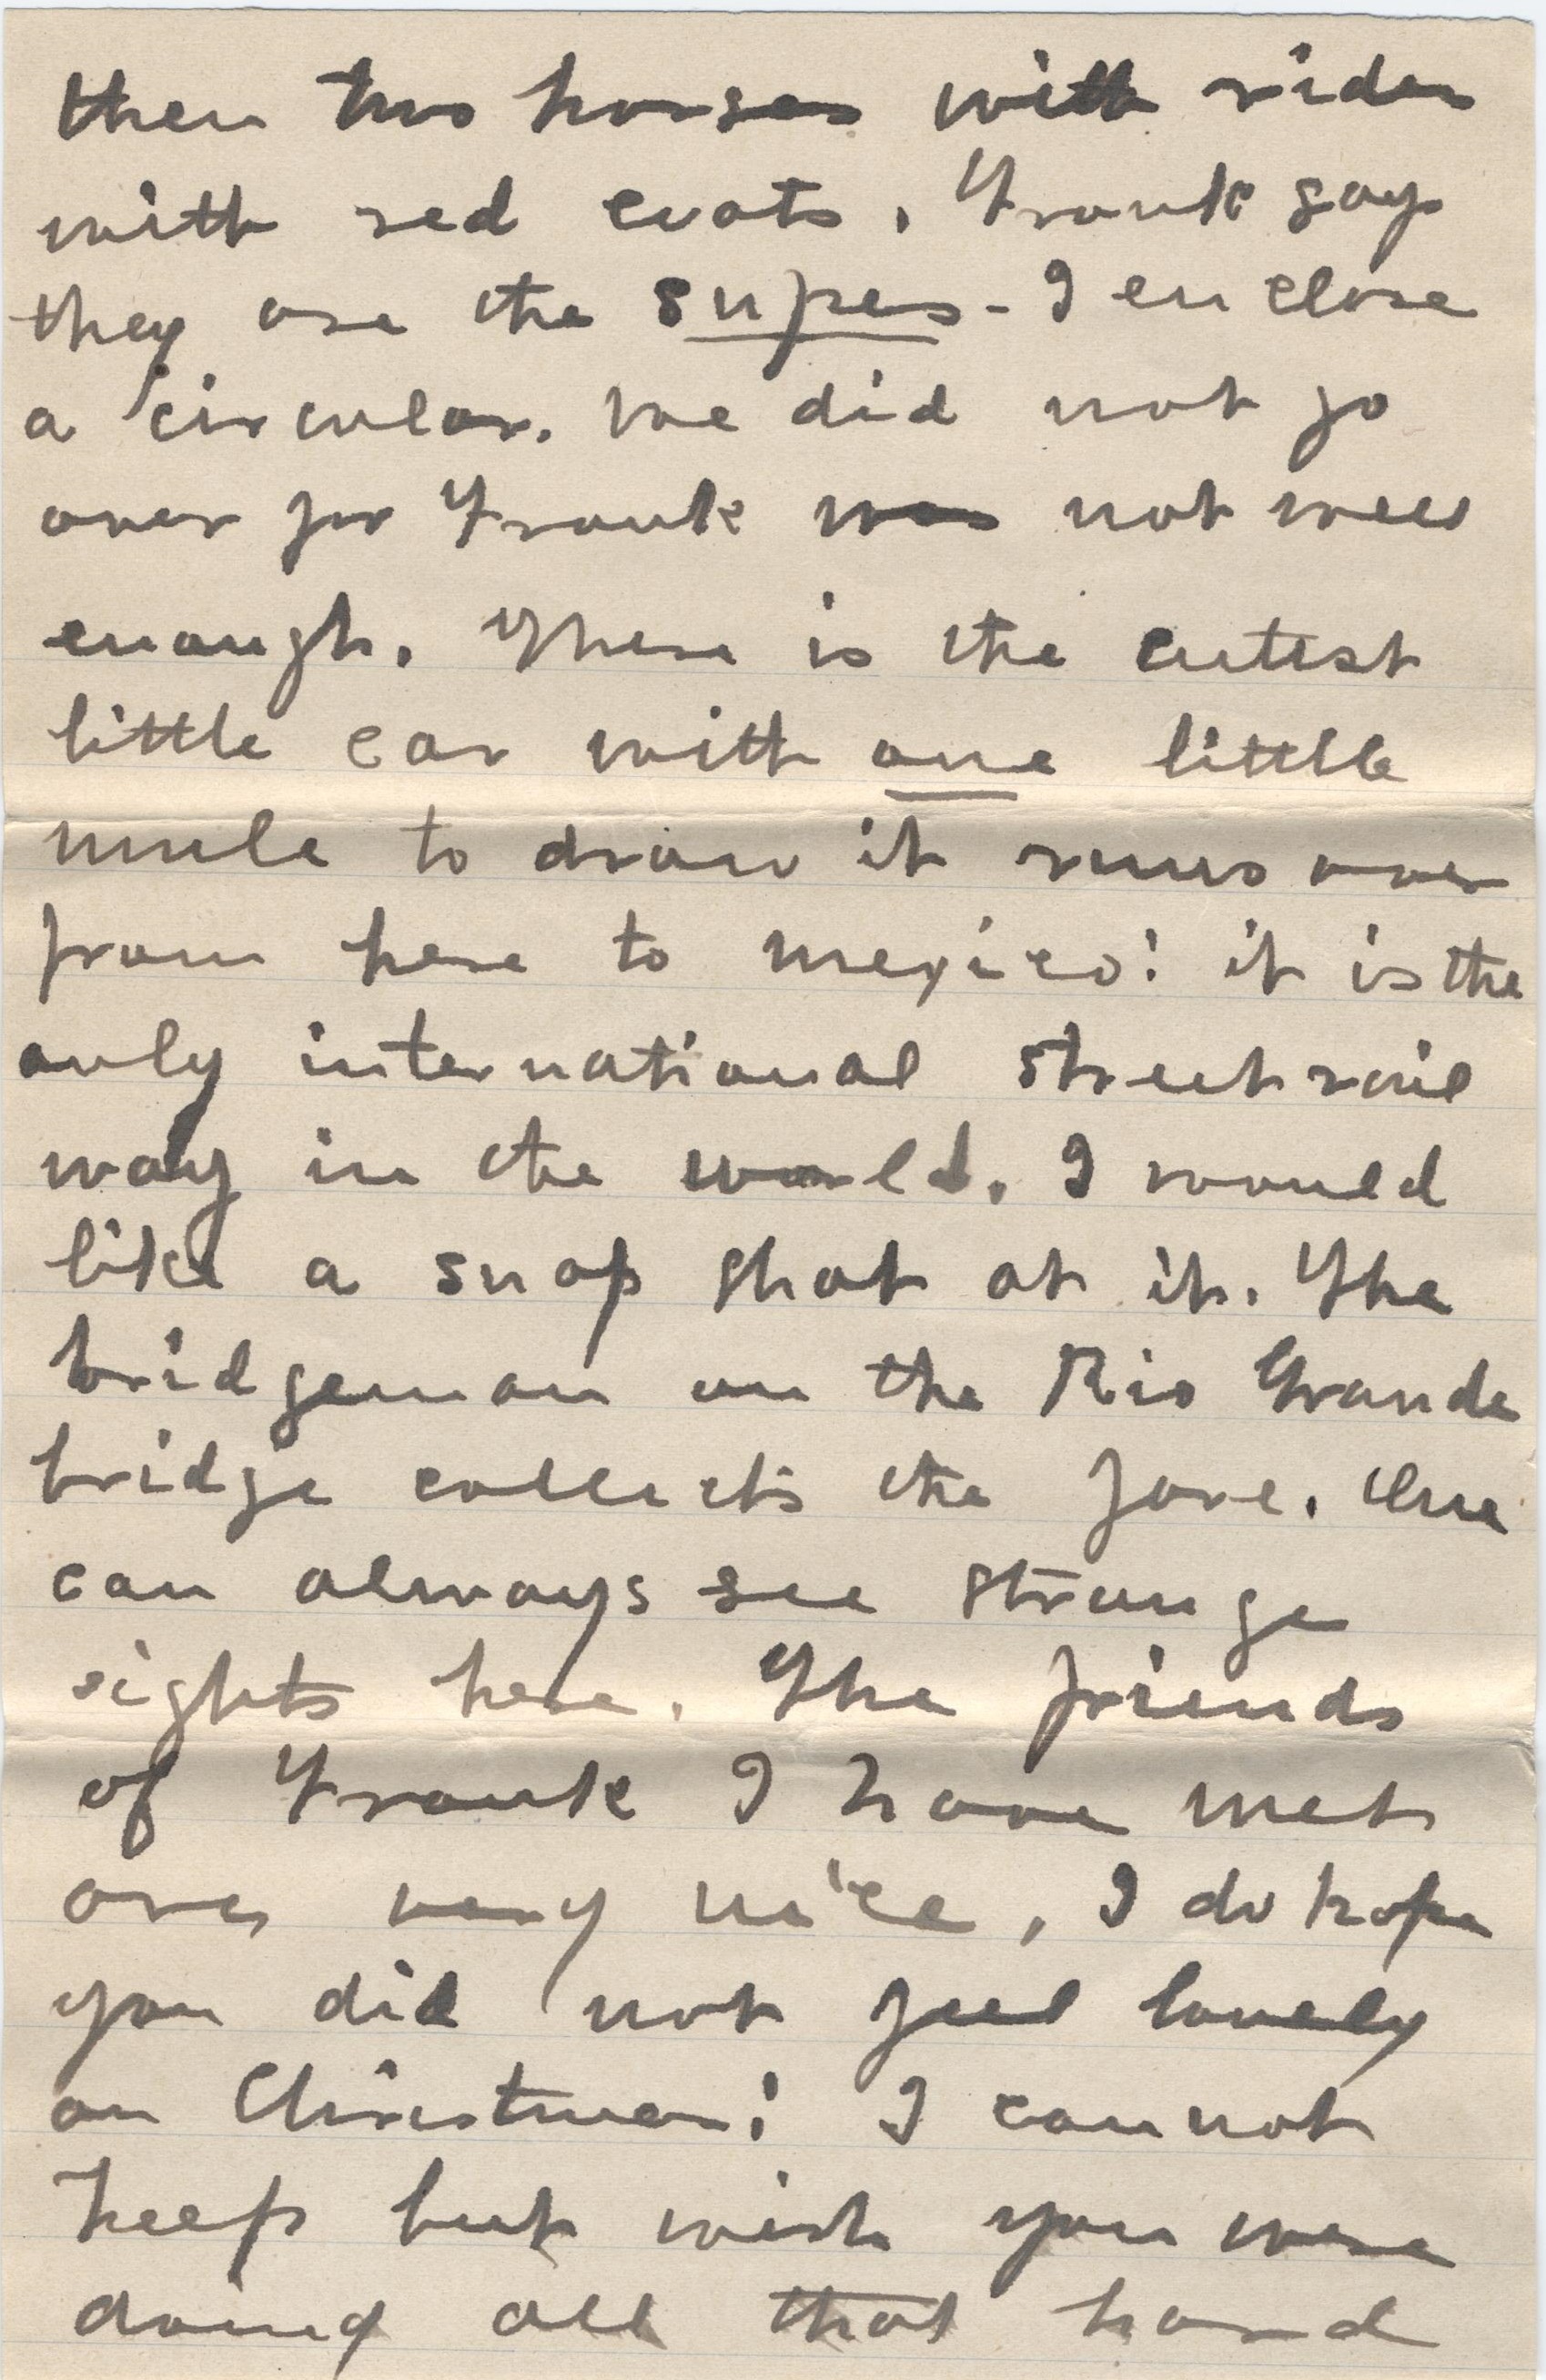 then two horses with rider
with red coats, Frank says
they are the supes - I enclose
a circular. We did not go
over for Frank was not well
enough. There is the cutest
little car with one little
mule to draw it runs over
from here to Mexico: it is the
only international street rail
way in the world. I would
like a snap shot at it. The
bridgeman on the Rio Grande
bridge collects the fare. One
can always see strange
sights here. The friends
of Frank I have met
are very nice, I do hope
you did not feel lonely
on Christmas: I cannot
keep but wish you were
doing all that hard